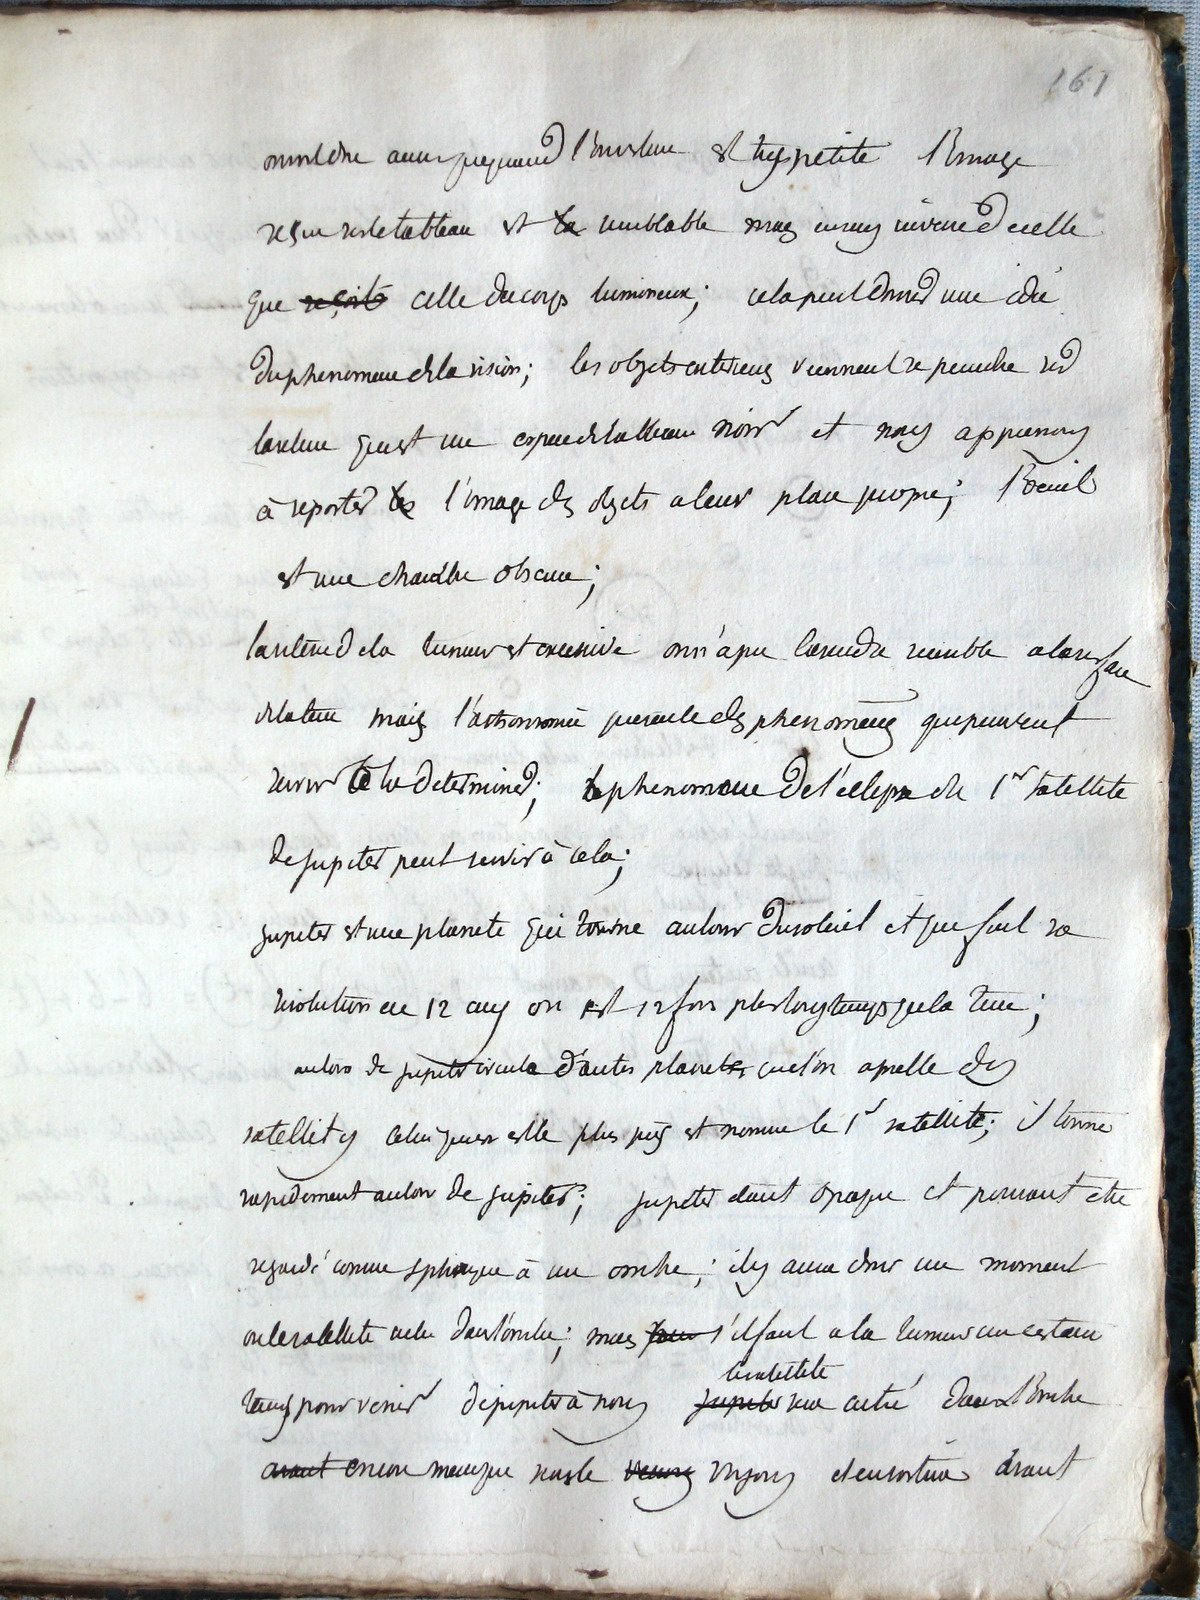 161
l'ouverture est tres petite l'image
reçue sur le tableau est la semblable mais en sens inverse d celle
que reçoit celle du corps lumineux; cela peut donner une idée
du phenomene de la vision; les objets exterieurs viennent se peindre sur
la retine qui est une espece de tableau noir et nous apprenons
à reporter les l'image des objets a leur place propre; l'oeuil
est une chambre obscure;
la vitesse de la lumiere est excessive on n'a pu la rendre sensible a la surface
de la terre mais l'astronomie presente des phenomènes qui peuvent
servir a la determiner; le phenomene de l'eclipse du 1r satellite
de jupiter peut servir à cela;
jupiter est une planete qui tourne autour du soleil et qui fait sa
revolution en 12 ans on est 12 fois plus longtemps que la terre;
autour de jupiter circule d'autres planetes que l'on apelle des
satellites celui qui en est le plus près est nommé le 1r satellite; il tourne
rapidement autour de jupiter; jupiter etant opaque et pouvant etre
regardé comme spherique à une ombre; il y aura donc un moment
ou le satellite entre dans l'ombre; mais s'il faut a la lumiere un certain
le satellite
temps pour venir de jupiter à nous jupiter sera entré dans l'ombre
avant encore meme que nous le voyons et en sortira avant